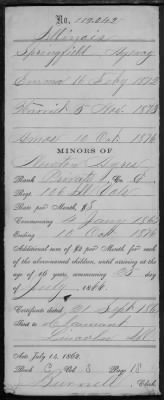 No. 119.242
Illinois
Springfield Agency
Emma 16 Feby 1873
Harriet 5 Nov. 1873
Amos 10 Oct. 1876
MINORS OF
Newton
Rank Private, Co. C
Regt 106 Ill Vols
Rate per Month, $8
Commencing 4 Jany 186
Ending 10 Oct. 1876
Additional sum of $2 per Month for each
of the abovenamed children, until arriving at the
age of 16 years, commencing 25 day
of July 1866.
Certificate dated 21 Sept 186
Sent to Claimant
Lincoln Ill.
Act July 14, 1862.
Book C Vol. 3 Page 18
Clerk.